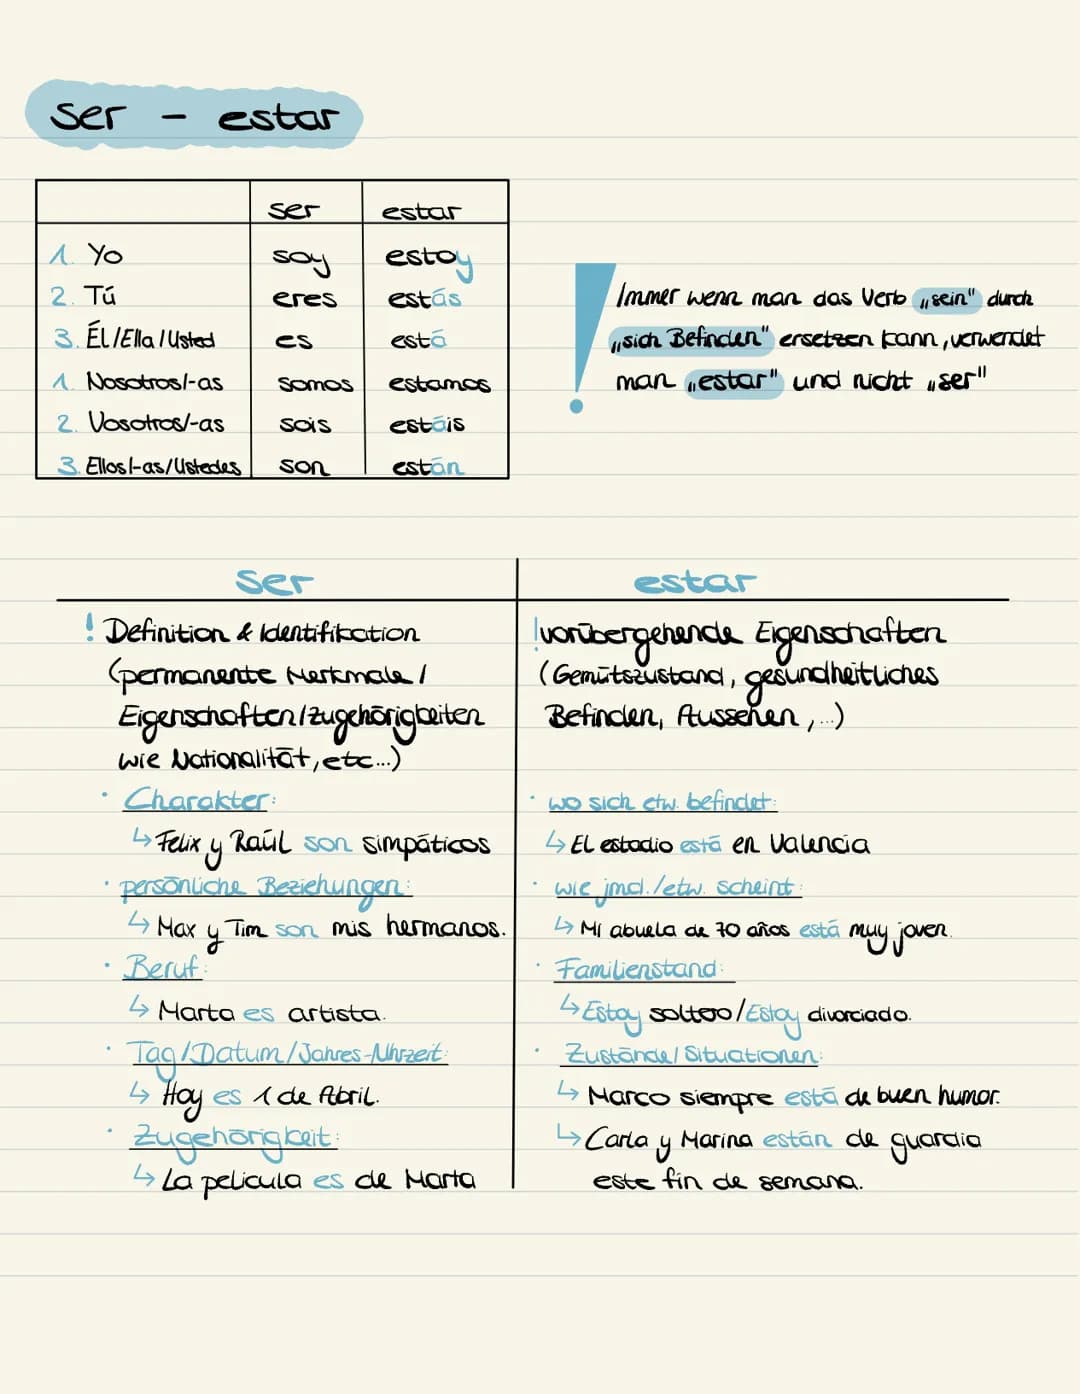 ser - estar
ser estar
1. Yo soy estoy
2. Tú eres estás
3. Él/Ella/Usted es está
1. Nosotros/-as somos estamos
2. Vosotros/-as sois estáis
3. Ellos/-as/Ustedes son están
! Immer wenn man das Verb „sein" durch
„sich Befinden" ersetzen kann, verwendet
man „estar" und nicht „ser"
ser
! Definition & Identifikation
(permanente Merkmale /
Eigenschaften/Zugehörigkeiten
wie Nationalität, etc...)
· Charakter:
↳ Felix y Raúl son simpáticos
· persönliche Beziehungen:
↳ Max y Tim son mis hermanos.
· Beruf:
↳ Marta es artista.
· Tag/Datum/Jahres-/Uhrzeit:
↳ Hoy es 1 de Abril.
· Zugehörigkeit:
↳ La pelicula es de Marta
estar
! vorübergehende Eigenschaften
(Gemütszustand, gesundheitliches
Befinden, Aussehen, ...)
· wo sich etw. befindet:
↳ El estadio está en Valencia
· wie jmd./etw. scheint:
↳ Mi abuela de 70 años está muy joven.
· Familienstand:
↳ Estoy soltero/Estoy divorciado.
· Zustände/Situationen:
↳ Marco siempre está de buen humor.
↳ Carla y Marina están de guardia
este fin de semana.